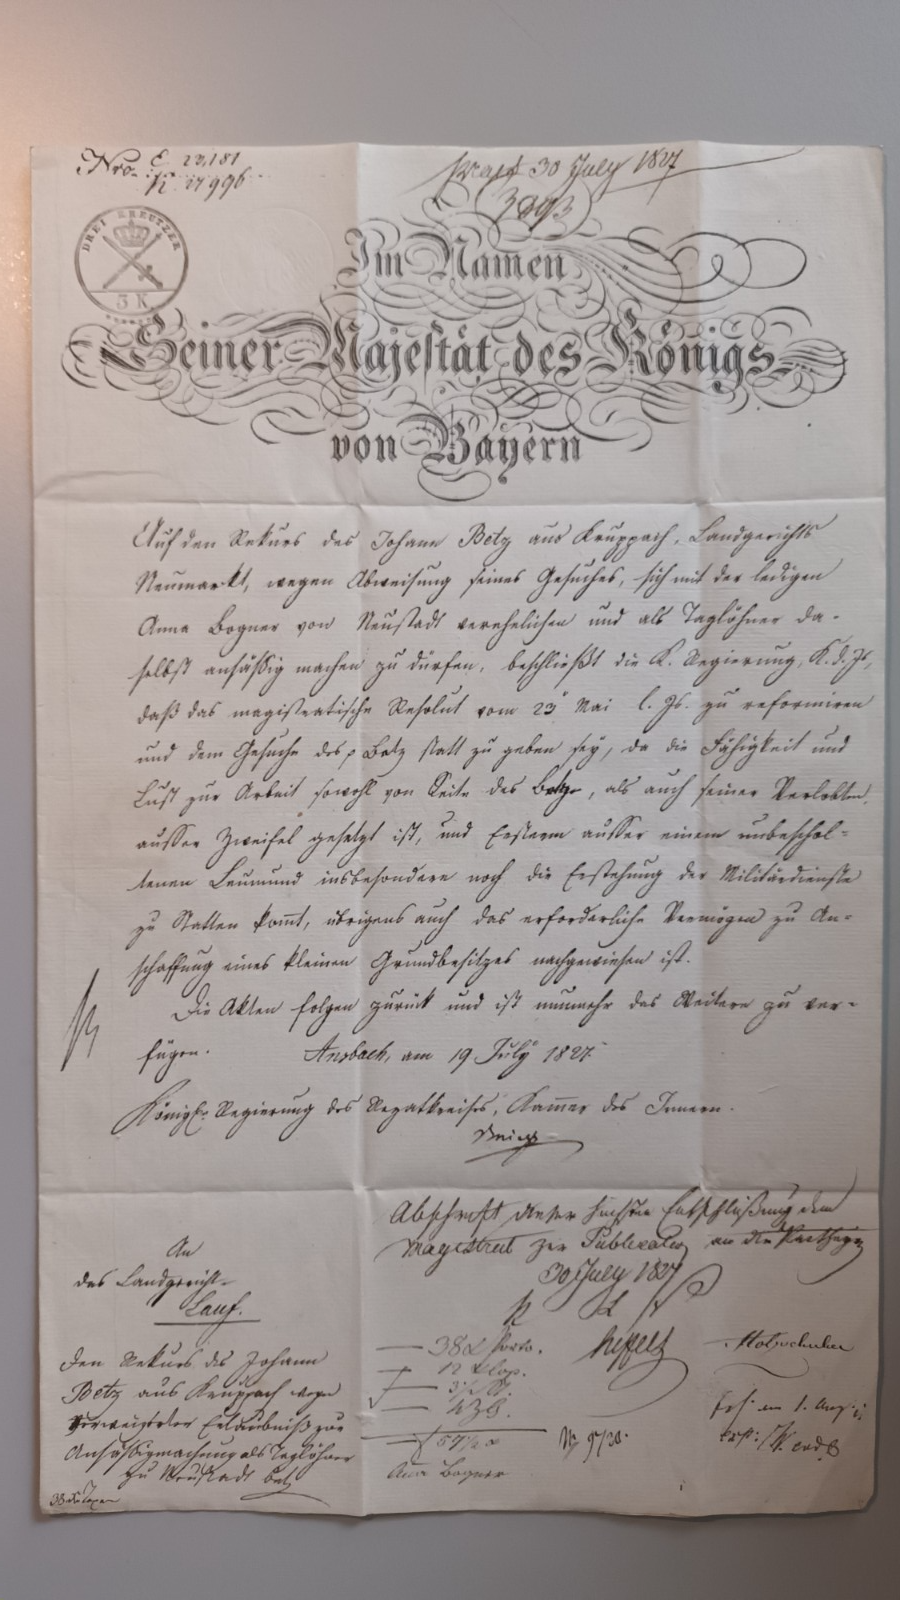 Nro. E. 23,181
N. 27996.
praes. 30 July 1827
3893
DREI KREUTZER
3 K
Im Namen
Seiner Majestät des Königs
von Bayern
Auf den Rekurs des Johann Betz aus Kruppach, Landgerichts
Neumarkt, wegen Abweisung seines Gesuches, sich mit der ledigen
Anna Bogner von Neustadt verehelichen und als Taglöhner da-
selbst ansäßig machen zu dürfen, beschließt die K. Regierung, K. d. Js,
daß das magistratische Resolut vom 23 Mai l. Js. zu reformiren
und dem Gesuche des p Betz statt zu geben sey, da die Fähigkeit und
Lust zur Arbeit sowohl von Seite des Betz, als auch seiner Verlobten,
ausser Zweifel gesetzt ist, und Ersterm ausser einem unbeschol-
tenen Leumund insbesondere noch die Erstehung der Militärdienste
zu Statten komt, übrigens auch das erforderliche Vermögen zu An-
schaffung eines kleinen Grundbesitzes nachgewiesen ist.
Die Akten folgen zurück und ist nunmehr das Weitere zu ver-
fügen. Ansbach, am 19 July 1827.
Königl. Regierung des Rezatkreises, Kammer des Innern.
Abschrift dieser Entschließung dem
Magistrat zur Publication an die
30 July 1827
An
das Landgericht
Lauf.
Den Rekurs des Johann
Betz aus Kruppach wegen
verweigerter Erlaubniß zur
Ansäßigmachung als Taglöhner
zu Neustadt betr
38 Porto.
Anna Bogner